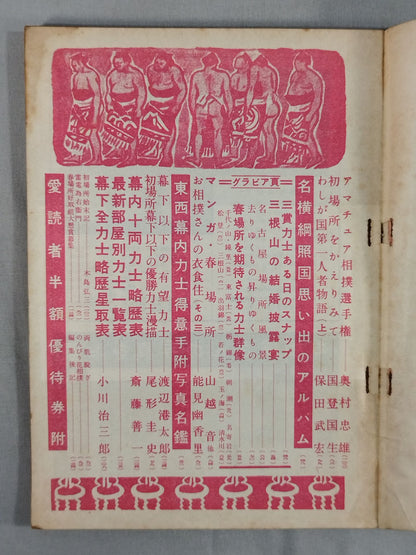 アマチュア相撲選手権 奥村忠雄
初場所をかえりみて 国登国生
わが国第一人者物語(上) 保田武宏
名横綱照国思い出のアルバム
頁アビラグ
三賞力士ある日のスナップ
三根山の結婚披露宴
名古屋場所風景
去りゆくもの来りゆくもの
春場所を期待される力士群像
マンガ春場所 山越音
お相撲さんの衣食住(その三) 能見幽香里
東西幕内力士得意手附写真名鑑
幕下以下の有望力士 渡辺港太郎
初場所幕下以下の優勝力士漫描 尾形圭史
幕内十両力士略歴表 斎藤善一
最新部屋別力士一覧表
幕下全力士略歴星取表 小川治三郎
初場所始末記 木島弘三
雷電為右衛門
春場所好取組大懸賞募集
両肌脱ぎ
のんびり花相撲
編集後記
愛読者半額優待券附